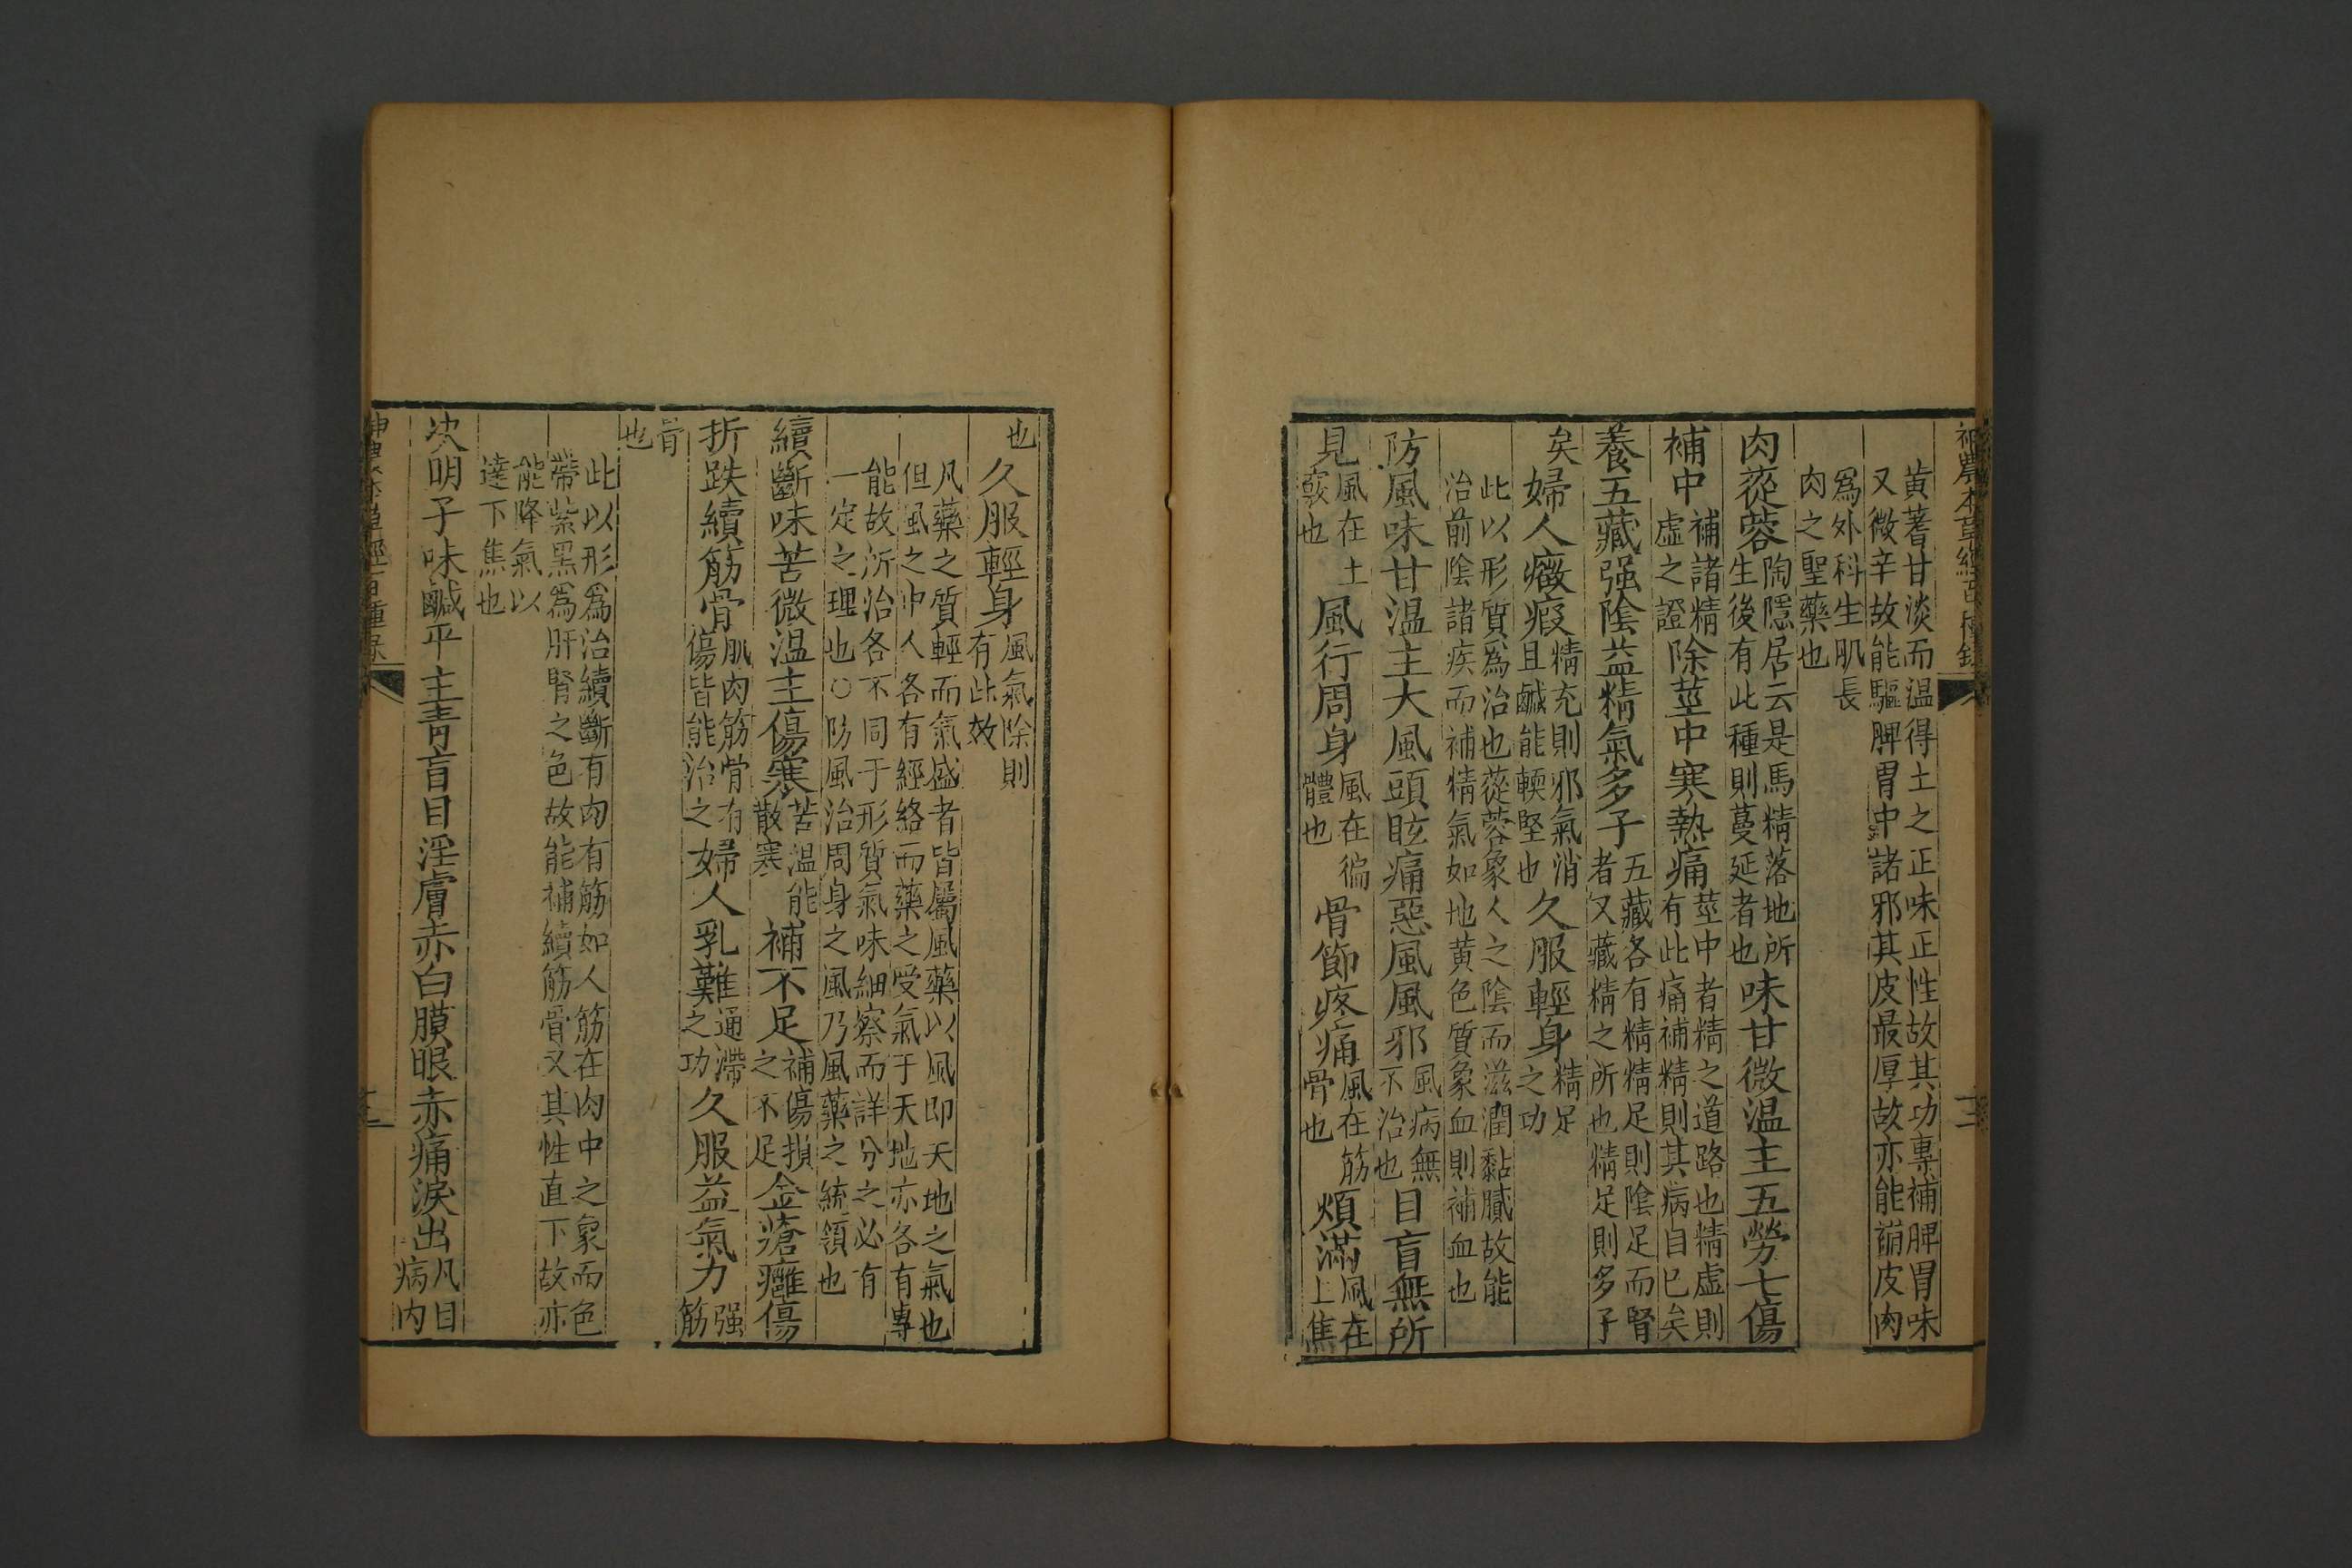 神農本草經百種錄
黄蓍甘淡而温得土之正味正性故其功專補脾胃味
又微辛故能驅脾胃中諸邪其皮最厚故亦能㴑皮肉
爲外科生肌長
肉之聖藥也
肉蓯蓉陶隱居云是馬精落地所生後有此種則蔓延者也味甘微温主五勞七傷
補中補諸精虚之證除莖中寒熱痛莖中者精之道路也精虚則有此痛補精則其病自已矣
養五藏强陰益精氣多子五藏各有精精足則陰足而腎者又藏精之所也精足則多子
矣婦人癥瘕精充則邪氣消且鹹能輭堅也久服輕身精足之功
此以形質爲治也蓯蓉象人之陰而滋潤黏膩故能
治前陰諸疾而補精氣如地黄色質象血則補血也
防風味甘温主大風頭眩痛惡風風邪風病無不治也目盲無所
見風在上竅也風行周身風在徧體也骨節疼痛風在筋骨也煩滿風在上焦
也久服輕身風氣除則有此效
凡藥之質輕而氣盛者皆屬風藥以風即天地之氣也
但風之中人各有經絡而藥之受氣于天地亦各有專
能故所治各不同于形質氣味細察而詳分之必有
一定之理也○防風治周身之風乃風藥之統領也
續斷味苦微温主傷寒苦温能散寒補不足補傷損之不足金瘡癰傷
折跌續筋骨肌肉筋骨有傷皆能治之婦人乳難通滯之功久服益氣力强筋
骨也
此以形爲治續斷有肉有筋如人筋在肉中之象而色
帶紫黑爲肝腎之色故能補續筋骨又其性直下故亦
能降氣以
達下焦也
决明子味鹹平主青盲目淫膚赤白膜眼赤痛淚出凡目病内